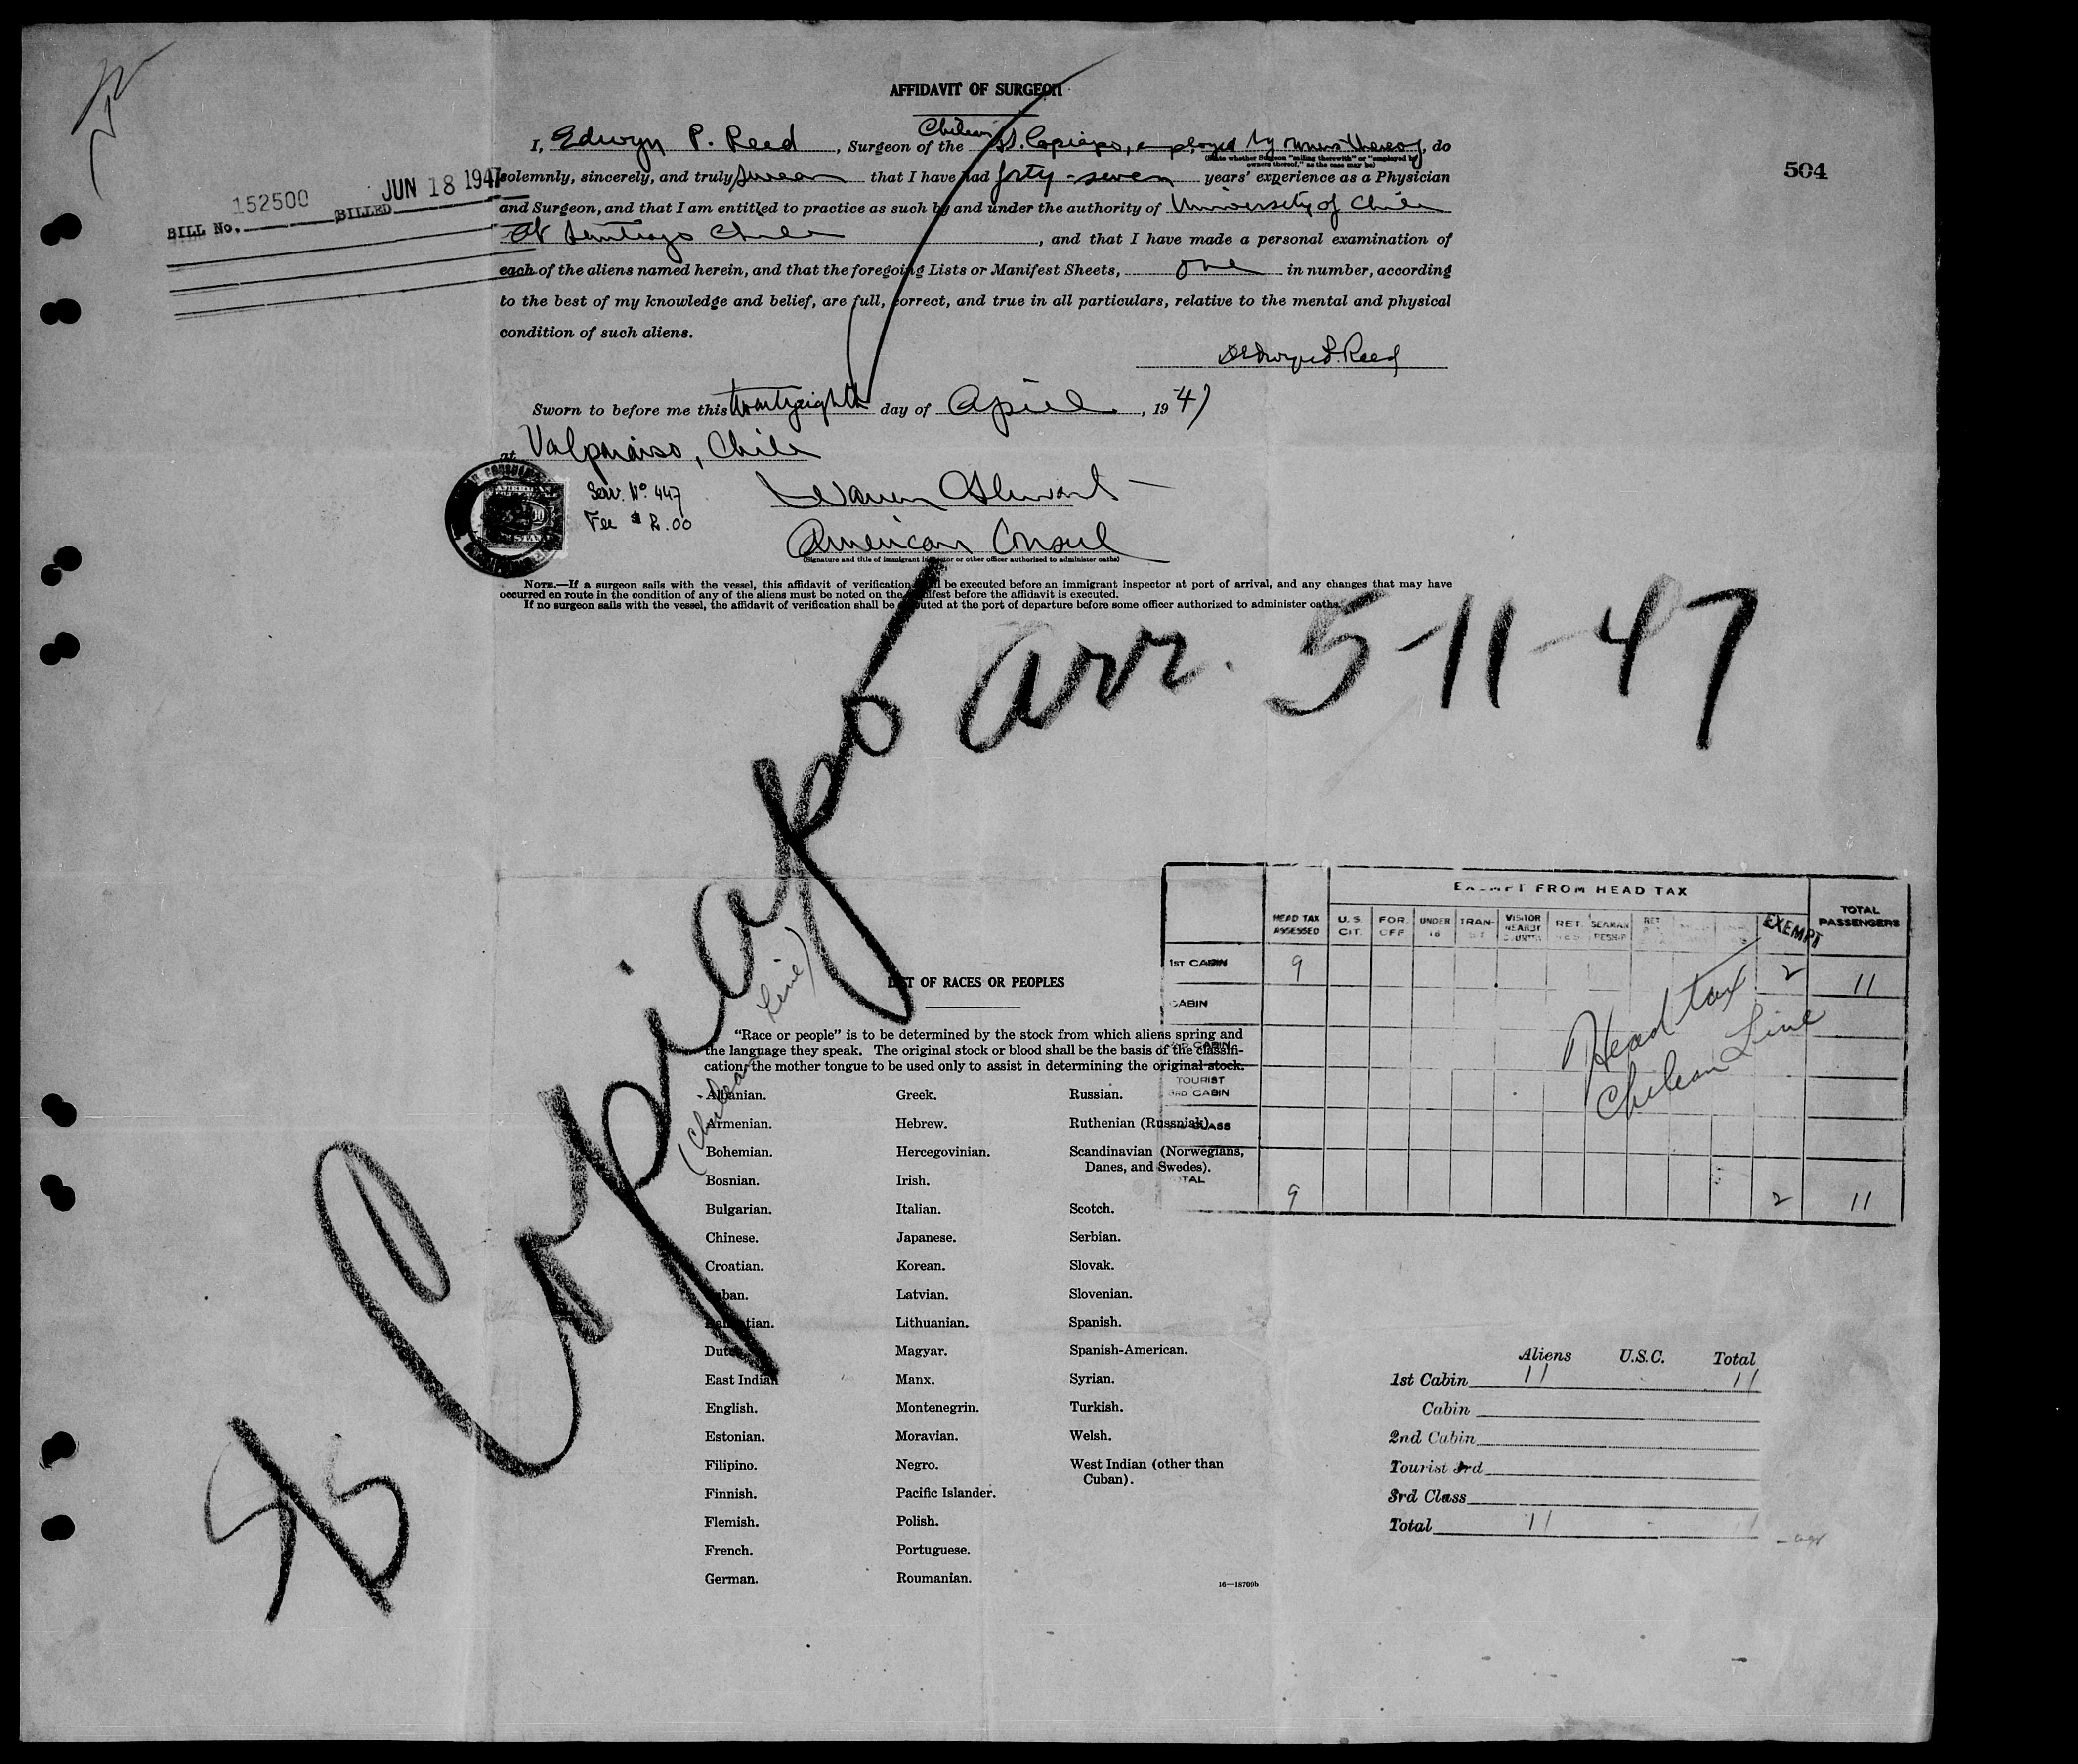 AFFIDAVIT OF SURGEON
I, Edwyn P. Reed, Surgeon of the Chilean SS. Copiapo, employed by owners thereof, do
(State whether Surgeon "sailing therewith" or "employed by owners thereof," as the case may be)
solemnly, sincerely, and truly swear that I have had forty-seven years' experience as a Physician
and Surgeon, and that I am entitled to practice as such by and under the authority of University of Chile
at Santiago Chile, and that I have made a personal examination of
each of the aliens named herein, and that the foregoing Lists or Manifest Sheets, one in number, according
to the best of my knowledge and belief, are full, correct, and true in all particulars, relative to the mental and physical
condition of such aliens.
504
BILL No. 152500 BILLED JUN 18 1947
Sworn to before me this twenty eighth day of April, 1947
at Valparaiso, Chile
Serv. No. 447
Fee $2.00
Warren Stewart
American Consul
(Signature and title of immigrant inspector or other officer authorized to administer oaths)
NOTE.—If a surgeon sails with the vessel, this affidavit of verification shall be executed before an immigrant inspector at port of arrival, and any changes that may have
occurred en route in the condition of any of the aliens must be noted on the manifest before the affidavit is executed.
If no surgeon sails with the vessel, the affidavit of verification shall be executed at the port of departure before some officer authorized to administer oaths.
S/S Copiapo arr. 5-11-47
(Chilean Line)
EXEMPT FROM HEAD TAX
HEAD TAX ASSESSED U.S. CIT. FOR. OFF UNDER 16 TRAN- VISITOR NEARBY RET. SEAMAN RET EXEMPT TOTAL PASSENGERS
1ST CABIN 9 2 11
CABIN
CABIN
TOURIST
3RD CABIN
CLASS
TOTAL 9 2 11
Head tax
Chilean Line
LIST OF RACES OR PEOPLES
"Race or people" is to be determined by the stock from which aliens spring and
the language they speak. The original stock or blood shall be the basis of the classifi-
cation, the mother tongue to be used only to assist in determining the original stock.
Albanian. Greek. Russian.
Armenian. Hebrew. Ruthenian (Russniak).
Bohemian. Hercegovinian. Scandinavian (Norwegians,
Danes, and Swedes).
Bosnian. Irish.
Bulgarian. Italian. Scotch.
Chinese. Japanese. Serbian.
Croatian. Korean. Slovak.
Cuban. Latvian. Slovenian.
Dalmatian. Lithuanian. Spanish.
Dutch. Magyar. Spanish-American.
East Indian. Manx. Syrian.
English. Montenegrin. Turkish.
Estonian. Moravian. Welsh.
Filipino. Negro. West Indian (other than
Cuban).
Finnish. Pacific Islander.
Flemish. Polish.
French. Portuguese.
German. Roumanian.
16—18709b
Aliens U.S.C. Total
1st Cabin 11 11
Cabin
2nd Cabin
Tourist 3rd
3rd Class
Total 11 11